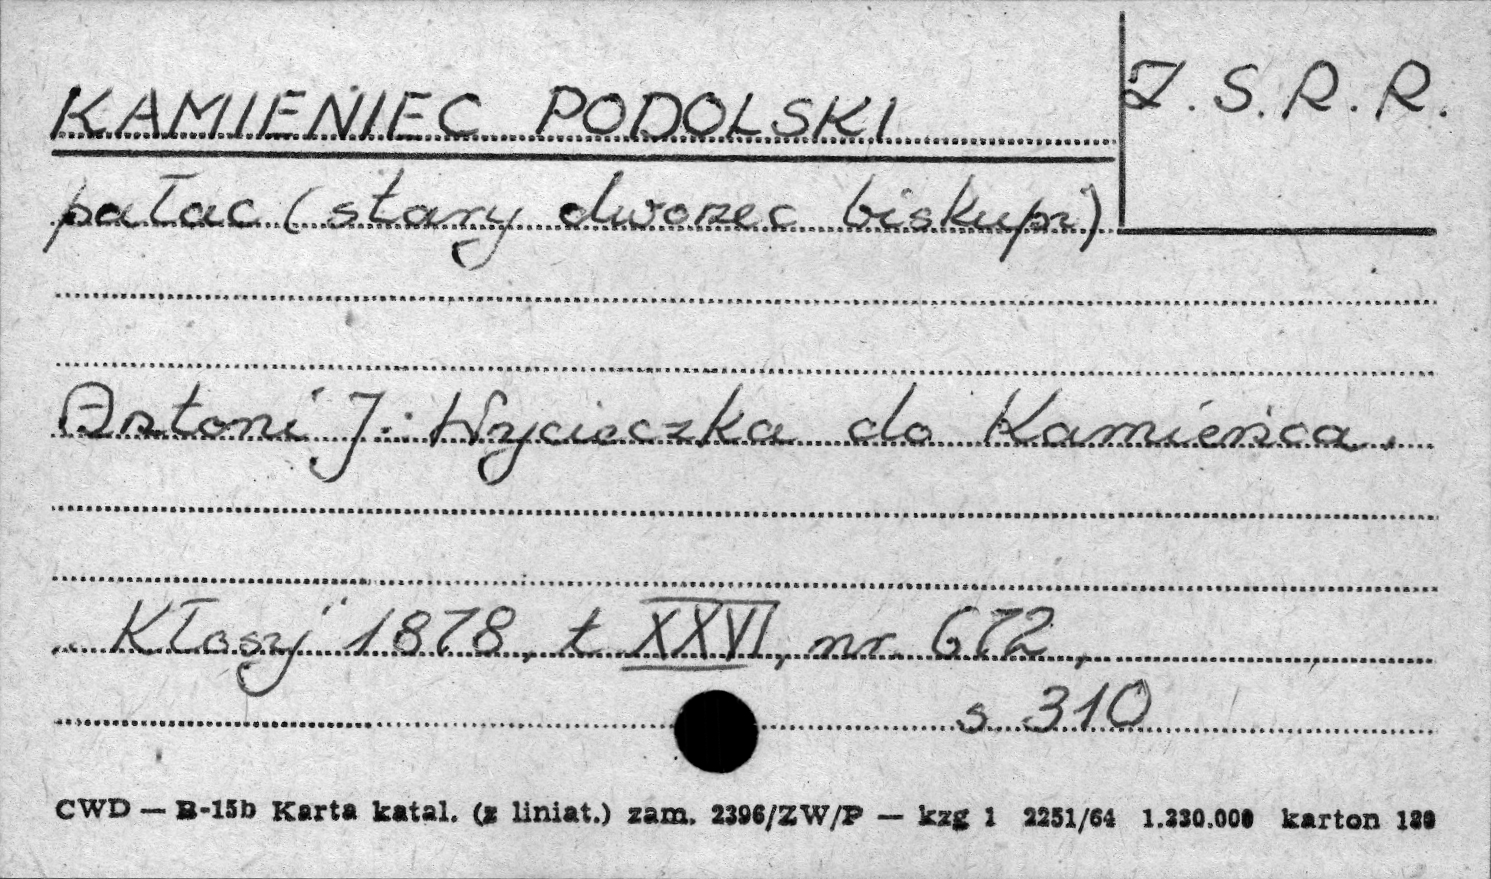 KAMIENIEC PODOLSKI
Z.S.R.R.
pałac (stary dworzec biskupi)
Antoni J.: Wycieczka do Kamieńca.
„Kłosy" 1878, t XXVI, nr. 672,
s 310
CWD — B-15b Karta katal. (z liniat.) zam. 2396/ZW/P — kzg 1 2251/64 1.230.000 karton